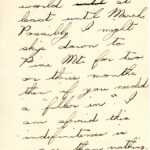 world until at
least until March.
Possibly I might
skip down to
Pine Mt. for two
or three months
then if you needed
a "filler in". I
am afraid this
indefiniteness is
than nothing.